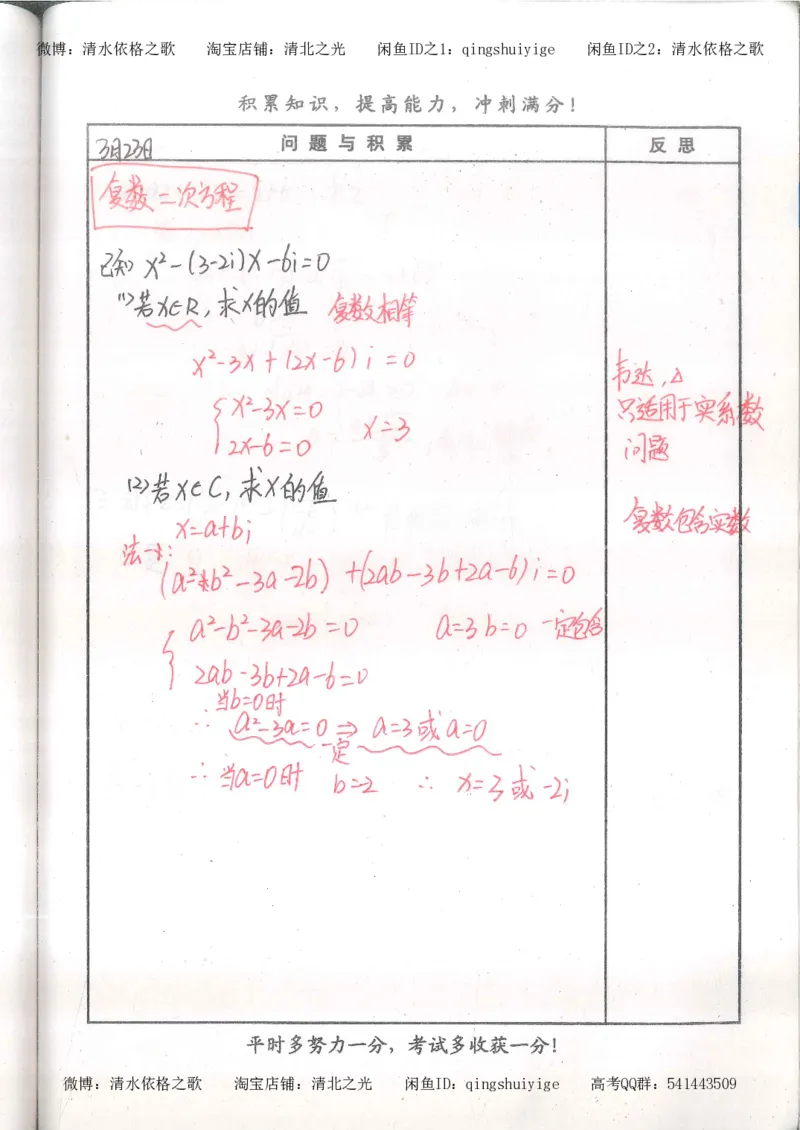 微博：清水依格之歌 淘宝店铺：清北之光 闲鱼ID之1：qingshuiyige 闲鱼ID之2：清水依格之歌
积累知识，提高能力，冲刺满分！
3月23日 问题与积累 反思
复数二次方程
已知 x²-(3-2i)x-6i=0
(1)若x∈R，求x的值 复数相等
x²-3x+(2x-6)i=0
{x²-3x=0
2x-6=0 x=3
(2)若x∈C，求x的值
x=a+bi
法一：
(a²-b²-3a-2b)+(2ab-3b+2a-6)i=0
{a²-b²-3a-2b=0 a=3 b=0 一定包含
2ab-3b+2a-6=0
当b=0时
∴ a²-3a=0 ⇒ a=3或a=0
一定
∴ 当a=0时 b=-2 ∴ x=3或-2i
韦达，△
只适用于实系数
问题
复数包含实数
平时多努力一分，考试多收获一分！
微博：清水依格之歌 淘宝店铺：清北之光 闲鱼ID：qingshuiyige 高考QQ群：541443509